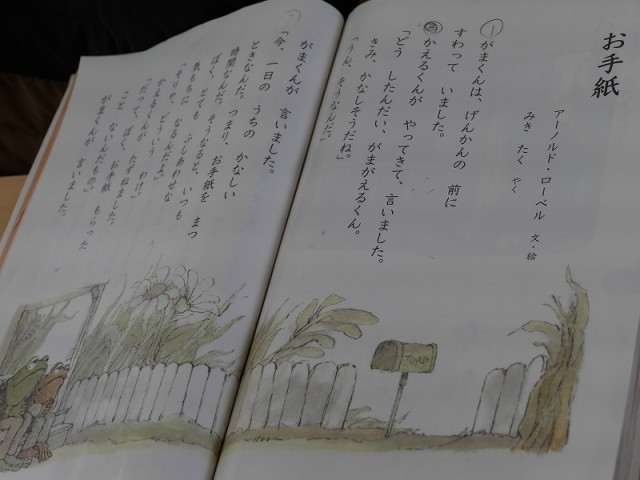 お手紙
アーノルド・ローベル 文・絵
みき たく やく
がまくんは、げんかんの 前に
すわって いました。
かえるくんが やってきて、言いました。
「どう したんだい、がまがえるくん。
きみ、かなしそうだね。」
「うん、そうなんだ。」
がまくんが 言いました。
「今、一日の うちの かなしい
ときなんだ。つまり、お手紙を まつ
時間なんだ。そうなると、いつも
ぼく、とても ふしあわせな
気もちに なるんだよ。」
「そりゃ、どういう わけ。」
かえるくんが たずねました。
「だって、ぼく、お手紙 もらった
こと ないんだもの。」
がまくんが 言いました。
TOAD